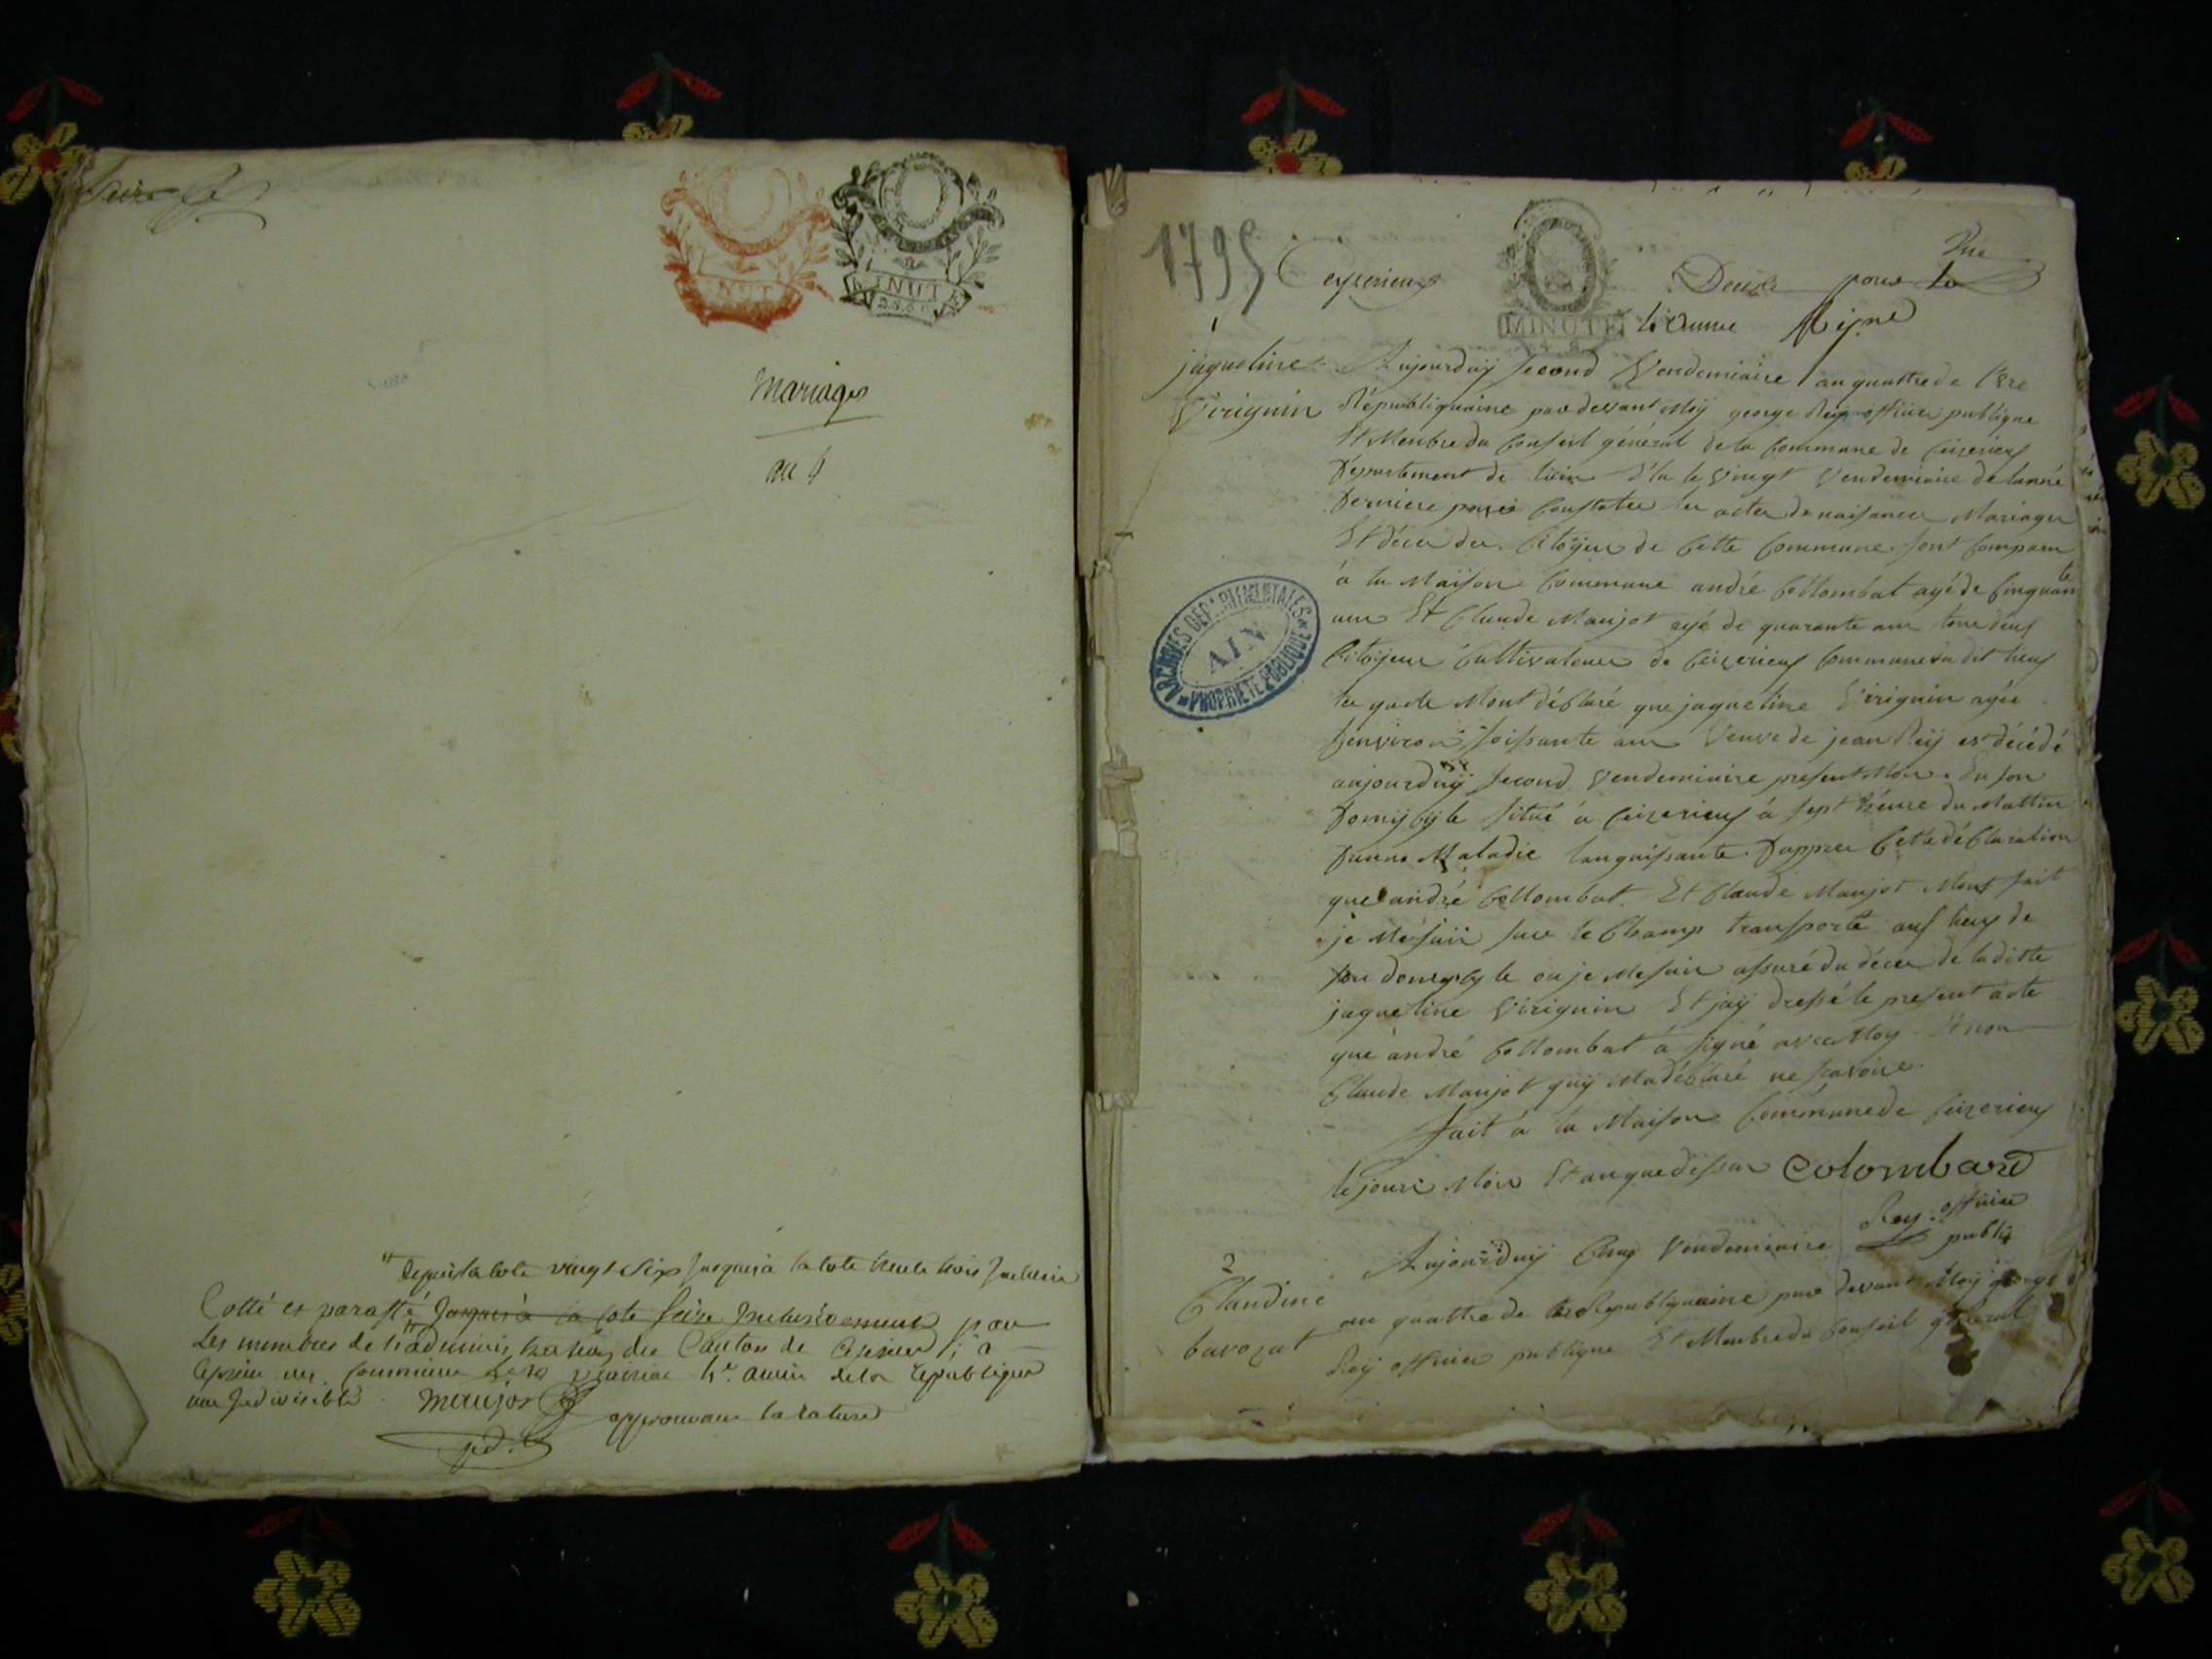 MINUTE
Mariages
an 4
depuis la cote vingt six jusqu'a la cote trente trois
Cotté et paraffé jusqu'a la cote seize inclusivement par
Les membres de l'administration du Canton de
4e année de la republique
une Indivisible Maujot
approuvant la rature
1795
Ceyzerieux
MINUTE
Deces pour
L'annee
1
jaqueline
Virignin
Aujourduÿ second Vendemiaire an quattre de l'Ere
Républiquaine par devant Moÿ george Reÿ officier publique
Et Menbre du Conseil général de la Commune de Ceizerieux
Département de lain Elu le vingt Vendemiaire de lanné
derniere pour Constater les actes de naissances Mariages
Et déces des Citoÿens de Cette Commune sont Comparu
à la Maison Commune andré Collombat agé de Cinquante
ans Et Claude Maujot agé de quarante ans tous deux
Citoÿens Cultivateurs de Ceizerieux Commune du dit lieux
les quels Mont déclaré que jaqueline Virignin agée
denviron soissante ans Veuve de jean Reÿ est décédé
aujourduÿ second Vendemiaire present Mois En son
domÿcÿle situé à Ceizerieux à sept heure du Mattin
dunne Maladie languissante dappres Cette déclaration
que andré Collombat Et Claude Maujot Mont fait
je Mesuis sur le Champ transporté aux lieux de
son domÿcÿle ou je Mesuis assuré du déces de laditte
jaqueline Virignin Et jaÿ dressé le present acte
que andré Collombat à signé avec Moy Et non
Claude Maujot quÿ Ma déclaré ne scavoire
fait à la Maison Commune de Ceizerieux
le jour Mois Et an que dessus Colombard
Rey officier
public
ARCHIVES DEPARTEMENTALES
AIN
PROPRIETE PUBLIQUE
2
Claudine
bavozat
Aujourduÿ Cinq Vendemiaire
an quattre de Republiquaine par devant Moÿ george
Reÿ officier publique Et Menbre du Conseil général